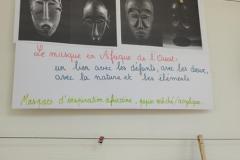 Le masque en Afrique de l'Ouest :
un lien avec les défunts, avec les dieux,
avec la nature et les éléments
Masques d'inspiration africaine, papier mâché/acrylique.